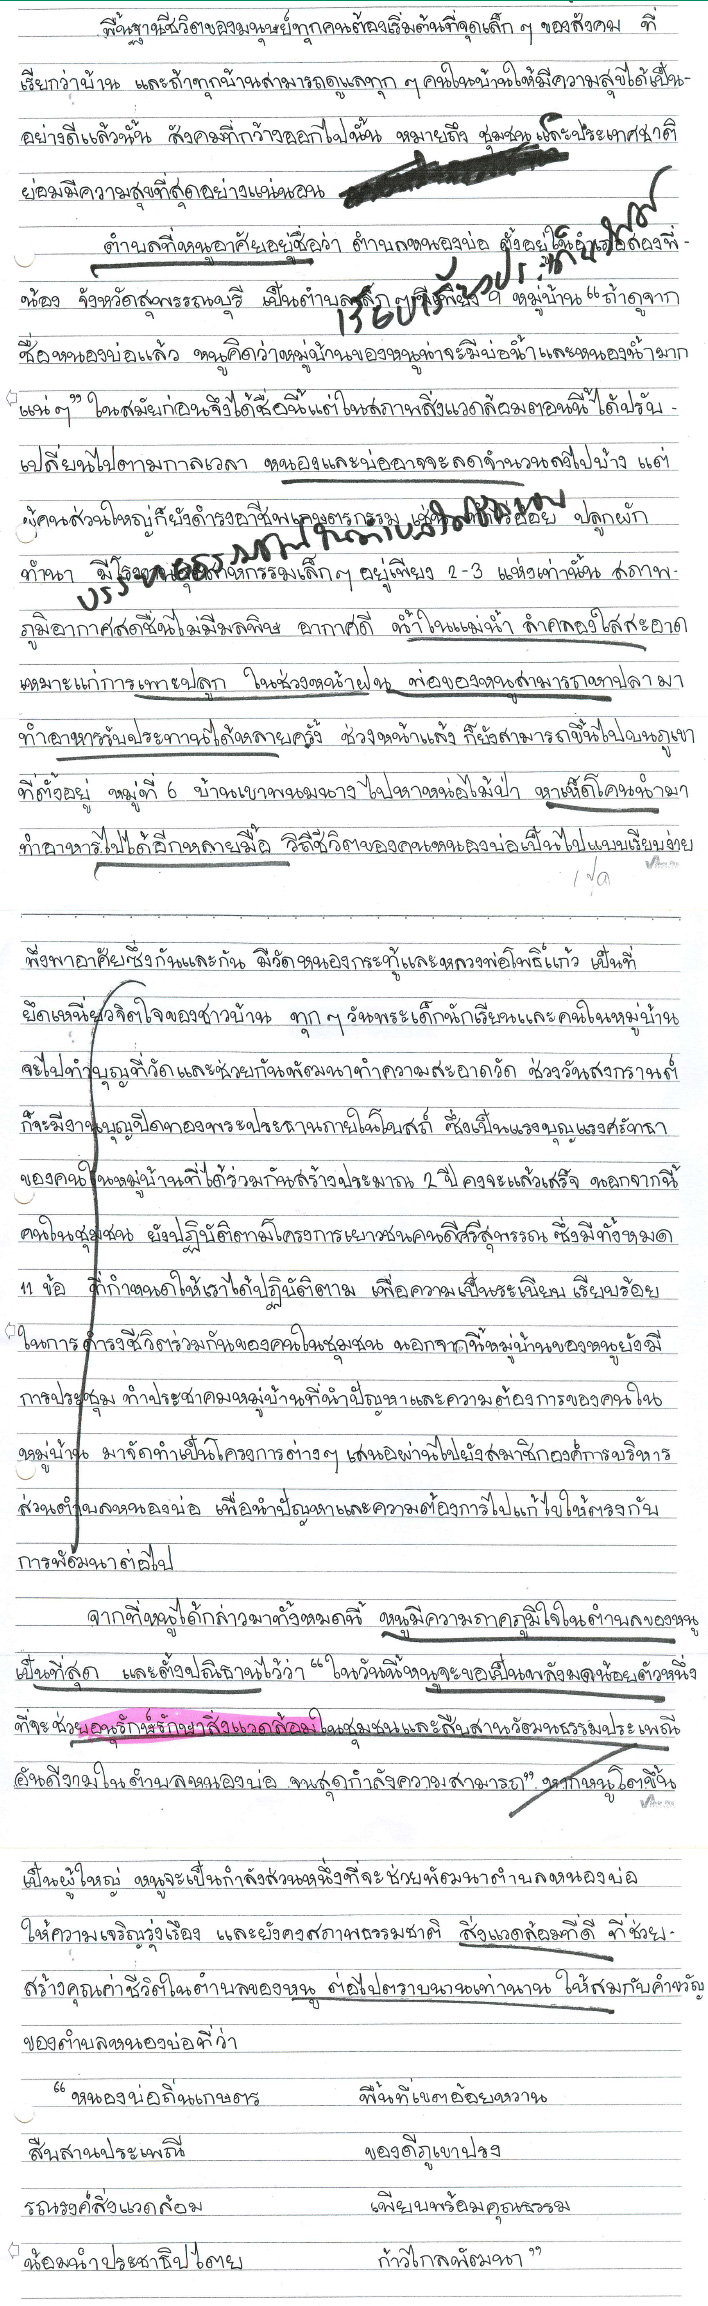 พื้นฐานชีวิตของมนุษย์ทุกคนต้องเริ่มต้นที่จุดเล็ก ๆ ของสังคม ที่
เรียกว่าบ้าน และถ้าทุกบ้านสามารถดูแลทุก ๆ คนในบ้านให้มีความสุขได้เป็น-
อย่างดีแล้วนั้น สังคมที่กว้างออกไปนั้น หมายถึง ชุมชน และประเทศชาติ
ย่อมมีความสุขที่สุดอย่างแน่นอน
ตำบลที่หนูอาศัยอยู่ชื่อว่า ตำบลหนองบ่อ ตั้งอยู่ในอำเภอสองพี่-
น้อง จังหวัดสุพรรณบุรี เป็นตำบลเล็ก ๆ มีเพียง 9 หมู่บ้าน “ถ้าดูจาก
ชื่อหนองบ่อแล้ว หนูคิดว่าหมู่บ้านของหนูน่าจะมีบ่อน้ำและหนองน้ำมาก
แน่ ๆ” ในสมัยก่อนจึงได้ชื่อนี้แต่ในสภาพสิ่งแวดล้อมตอนนี้ ได้ปรับ -
เปลี่ยนไปตามกาลเวลา หนองและบ่ออาจจะลดจำนวนลงไปบ้าง แต่
ผู้คนส่วนใหญ่ก็ยังดำรงอาชีพเกษตรกรรม เช่น ทำไร่อ้อย ปลูกผัก
บรรยายธรรมชาติในตำบลได้ชัดเจน
ทำนา มีโรงงานอุตสาหกรรมเล็ก ๆ อยู่เพียง 2-3 แห่งเท่านั้น สภาพ-
ภูมิอากาศสดชื่นไม่มีมลพิษ อากาศดี น้ำในแม่น้ำ ลำคลองใสสะอาด
เหมาะแก่การเพาะปลูก ในช่วงหน้าฝน พ่อของหนูสามารถหาปลามา
ทำอาหารรับประทานได้หลายครั้ง ช่วงหน้าแล้ง ก็ยังสามารถขึ้นไปบนภูเขา
ที่ตั้งอยู่ หมู่ที่ 6 บ้านเขาพนมนาง ไปหาหน่อไม้ป่า หาเห็ดโคนนำมา
ทำอาหารไปได้อีกหลายมื้อ วิถีชีวิตของคนหนองบ่อเป็นไปแบบเรียบง่าย
พึ่งพาอาศัยซึ่งกันและกัน มีวัดหนองกระทู้และหลวงพ่อโพธิ์แก้ว เป็นที่
ยึดเหนี่ยวจิตใจของชาวบ้าน ทุก ๆ วันพระเด็กนักเรียนและคนในหมู่บ้าน
จะไปทำบุญที่วัดและช่วยกันพัฒนาทำความสะอาดวัด ช่วงวันสงกรานต์
ก็จะมีงานบุญปิดทองพระประธานภายในโบสถ์ ซึ่งเป็นแรงบุญแรงศรัทธา
ของคนในหมู่บ้านที่ได้ร่วมกันสร้างประมาณ 2 ปี คงจะแล้วเสร็จ นอกจากนี้
คนในชุมชน ยังปฏิบัติตามโครงการเยาวชนคนดีศรีสุพรรณ ซึ่งมีทั้งหมด
11 ข้อ ที่กำหนดให้เราได้ปฏิบัติตาม เพื่อความเป็นระเบียบ เรียบร้อย
ในการดำรงชีวิตร่วมกันของคนในชุมชน นอกจากนี้หมู่บ้านของหนูยังมี
การประชุม ทำประชาคมหมู่บ้านที่นำปัญหาและความต้องการของคนใน
หมู่บ้าน มาจัดทำเป็นโครงการต่างๆ เสนอผ่านไปยังสมาชิกองค์การบริหาร
ส่วนตำบลหนองบ่อ เพื่อนำปัญหาและความต้องการไปแก้ไขให้ตรงกับ
การพัฒนาต่อไป
จากที่หนูได้กล่าวมาทั้งหมดนี้ หนูมีความภาคภูมิใจในตำบลของหนู
เป็นที่สุด และตั้งปณิธานไว้ว่า “ในวันนี้หนูจะขอเป็นพลังมดน้อยตัวหนึ่ง
ที่จะช่วยอนุรักษ์รักษาสิ่งแวดล้อมในชุมชนและสืบสานวัฒนธรรมประเพณี
อันดีงามในตำบลหนองบ่อ จนสุดกำลังความสามารถ” หากหนูโตขึ้น
เป็นผู้ใหญ่ หนูจะเป็นกำลังส่วนหนึ่งที่จะช่วยพัฒนาตำบลหนองบ่อ
ให้ความเจริญรุ่งเรือง และยังคงสภาพธรรมชาติ สิ่งแวดล้อมที่ดี ที่ช่วย-
สร้างคุณค่าชีวิตในตำบลของหนู ต่อไปตราบนานเท่านาน ให้สมกับคำขวัญ
ของตำบลหนองบ่อที่ว่า
“หนองบ่อถิ่นเกษตร พื้นที่เขตอ้อยหวาน
สืบสานประเพณี ของดีภูเขาปรง
รณรงค์สิ่งแวดล้อม เพียบพร้อมคุณธรรม
น้อมนำประชาธิปไตย ก้าวไกลพัฒนา”